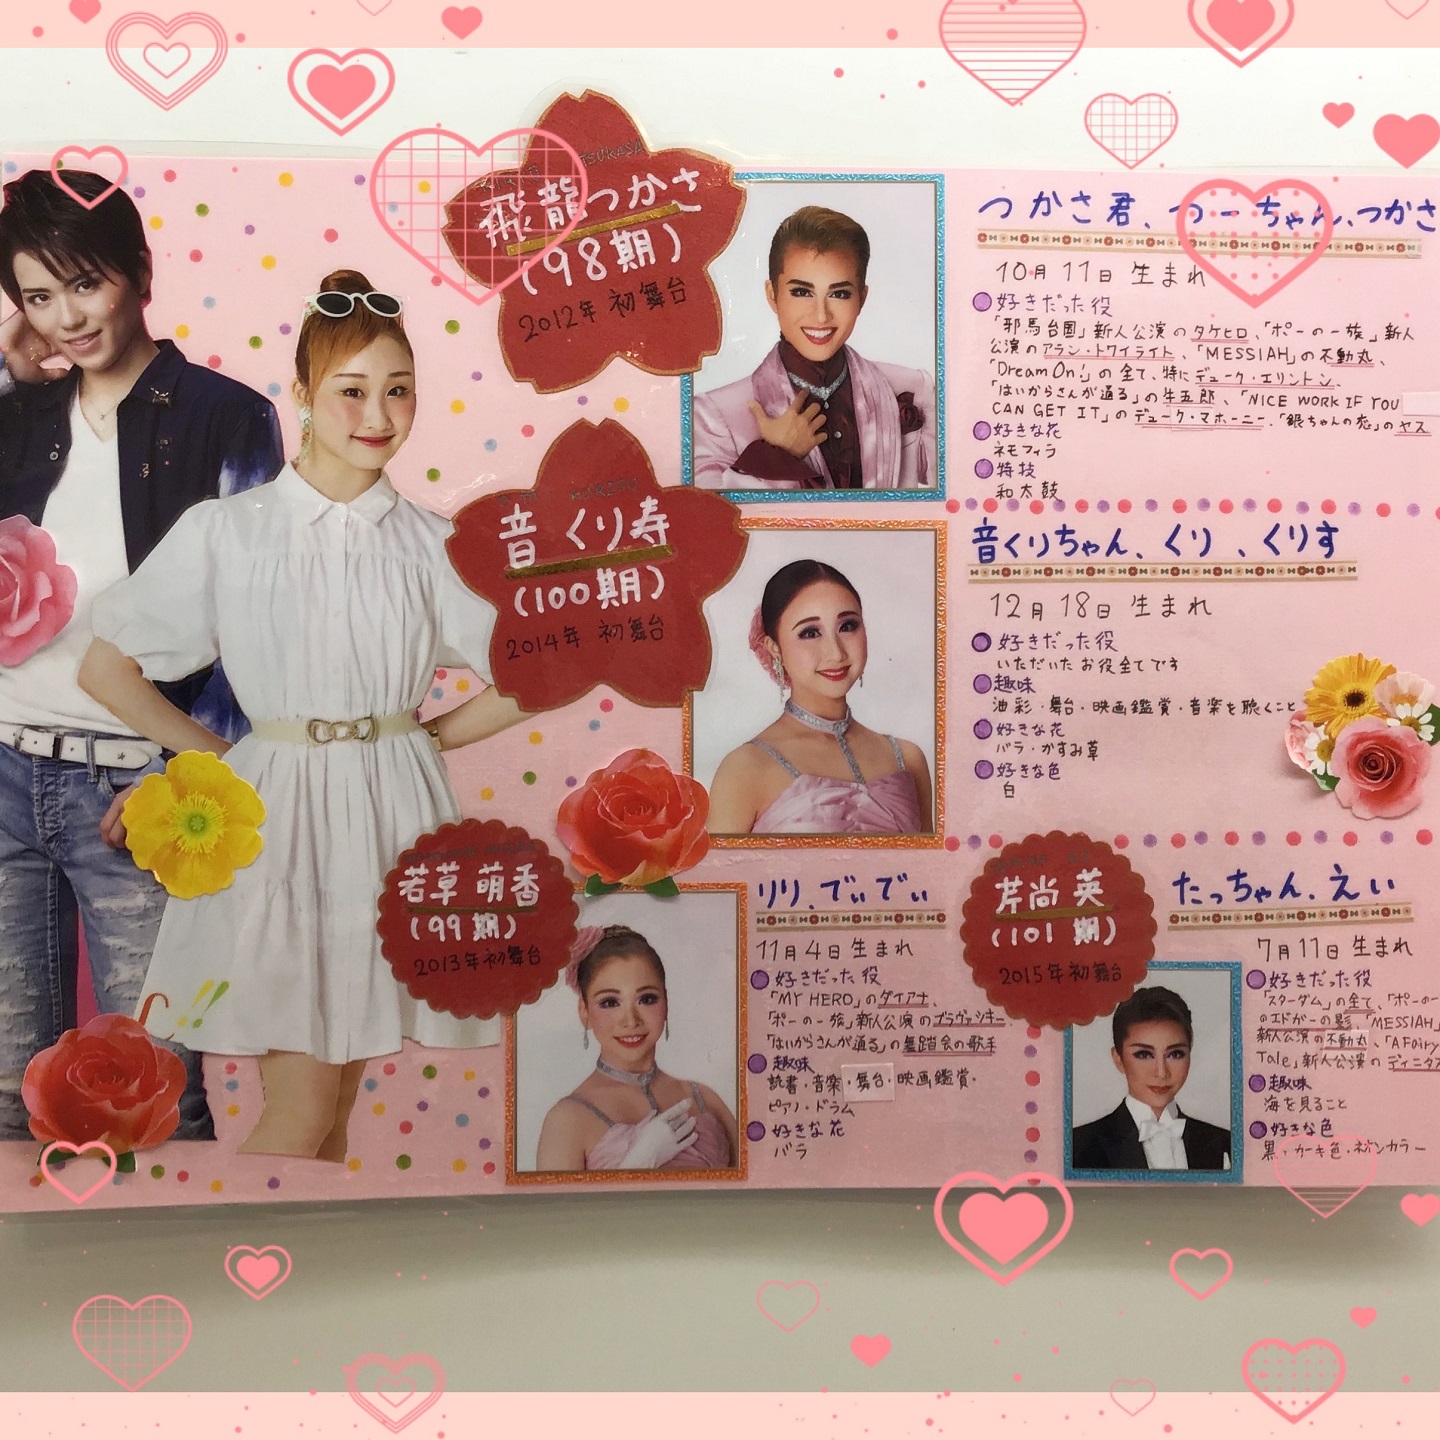 TSUKASA
飛龍つかさ
(98期)
2012年 初舞台
つかさ君、つーちゃん、つかさ
10月11日 生まれ
好きだった役
「邪馬台国」新人公演のタケヒコ、「ポーの一族」新人
公演のアラン・トワイライト、「MESSIAH」の不動丸、
「Dream On!」の全て、特にデューク・エリントン、
「はいからさんが通る」の牛五郎、「NICE WORK IF YOU
CAN GET IT」のデューク・マホーニー、「銀ちゃんの恋」のヤス
好きな花
ネモフィラ
特技
和太鼓
KURISU
音 くり寿
(100期)
2014年 初舞台
音くりちゃん、くり、くりす
12月18日 生まれ
好きだった役
いただいたお役全てです
趣味
油彩・舞台・映画鑑賞・音楽を聴くこと
好きな花
バラ・かすみ草
好きな色
白
若草 萌香
(99期)
2013年初舞台
リリ、でぃでぃ
11月4日生まれ
好きだった役
「MY HERO」のダイアナ、
「ポーの一族」新人公演のブラヴァツキー、
「はいからさんが通る」の舞踏会の歌手
趣味
読書・音楽・舞台・映画鑑賞・
ピアノ・ドラム
好きな花
バラ
芹尚 英
(101期)
2015年初舞台
たっちゃん、えい
7月11日 生まれ
好きだった役
「スターダム」の全て、「ポーの一
のエドガーの影、「MESSIAH」
新人公演の不動丸、「A Fairy
Tale」新人公演のディニタス
趣味
海を見ること
好きな色
黒・カーキ色・ボルカラー